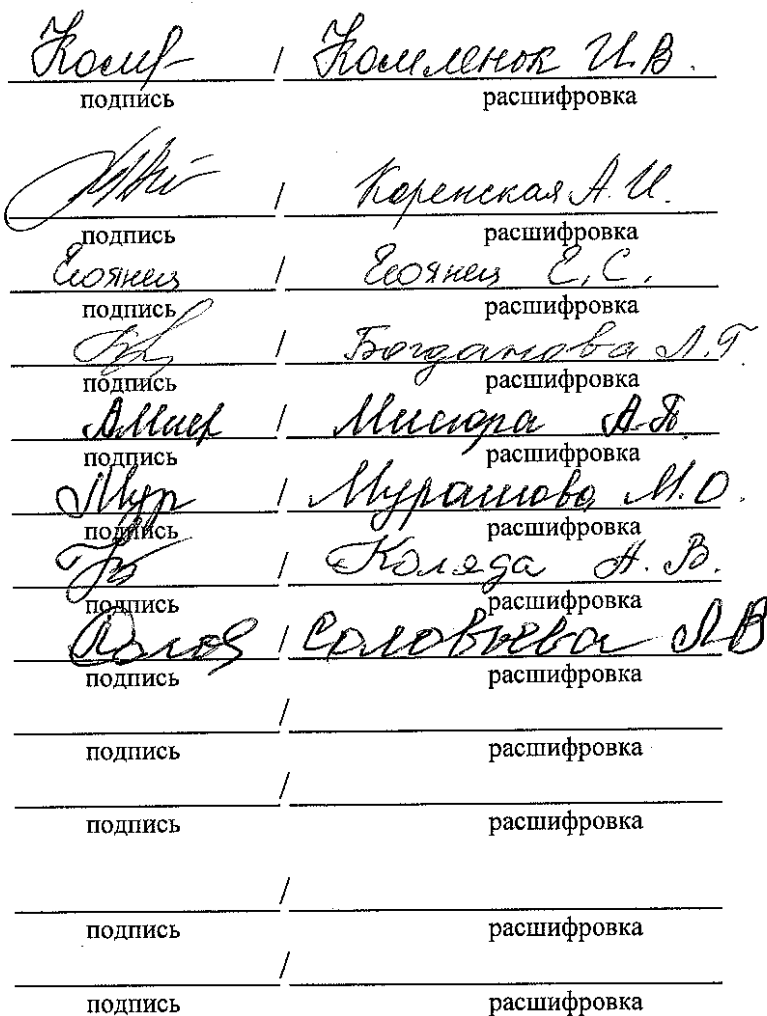 / Комленок И.В.
подпись расшифровка
/ Коренская А.И.
подпись расшифровка
Еоянец / Еоянец Е.С.
подпись расшифровка
/ Богданова Л.Г.
подпись расшифровка
/ Мисюра А.П.
подпись расшифровка
Мур / Мурашова М.О.
подпись расшифровка
/ Коляда А.В.
подпись расшифровка
/ Соловьева Л В
подпись расшифровка
/
подпись расшифровка
/
подпись расшифровка
/
подпись расшифровка
/
подпись расшифровка